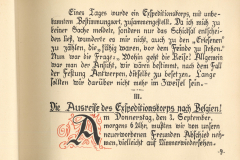 Eines Tages wurde ein Expeditionskorps, mit unbe-
kanntem Bestimmungsort, zusammengestellt. Da ich mich zu
keiner Sache meldete, sondern nur das Schicksal entschei-
den ließ, wunderte es mir nicht, auch zu den „Erlesenen"
zu zählen, die „fähig waren, vor dem Feinde zu stehen."
Nun war die Frage: Wohin geht die Reise! Allgemein
war man der Ansicht, wir wären bestimmt, nach dem Fall
der Festung Antwerpen, dieselbe zu besetzen. Lange
sollten wir darüber nicht mehr im Zweifel sein.
III.
Die Ausreise des Expeditionskorps nach Belgien!
Am Donnerstag, den 3. September,
morgens 6 Uhr, mußten wir von unsern
neuerworbenen Freunden Abschied neh-
men, vielleicht auf Nimmerwiedersehen.
-9-